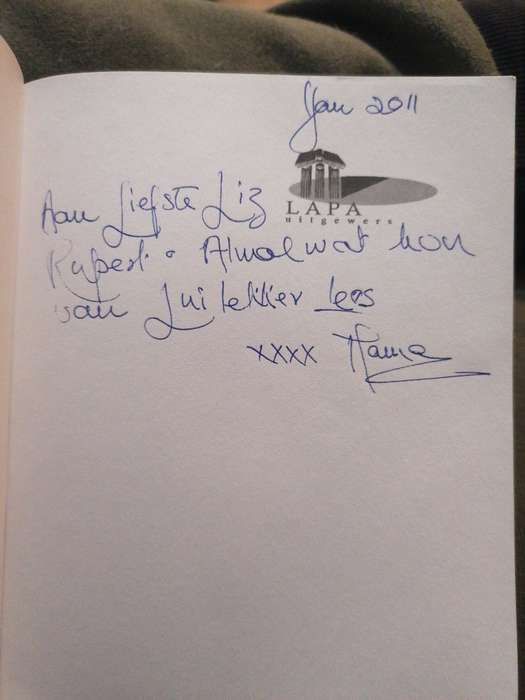 Jan 2011
LAPA
uitgewers
Aan Liefste Liz
Rupert & Almal wat hou
van lui lekker lees
xxxx Mama